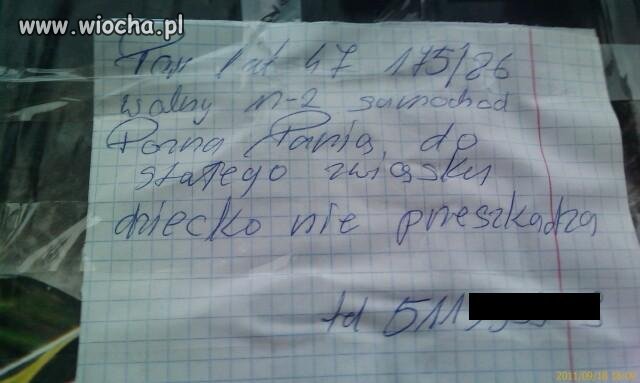 www.wiocha.pl
Pan lat 47 175/86
wolny m-2 samochod
Pozna Panią do
stałego związku
dziecko nie przeszkadza
td 511
2011/09/18